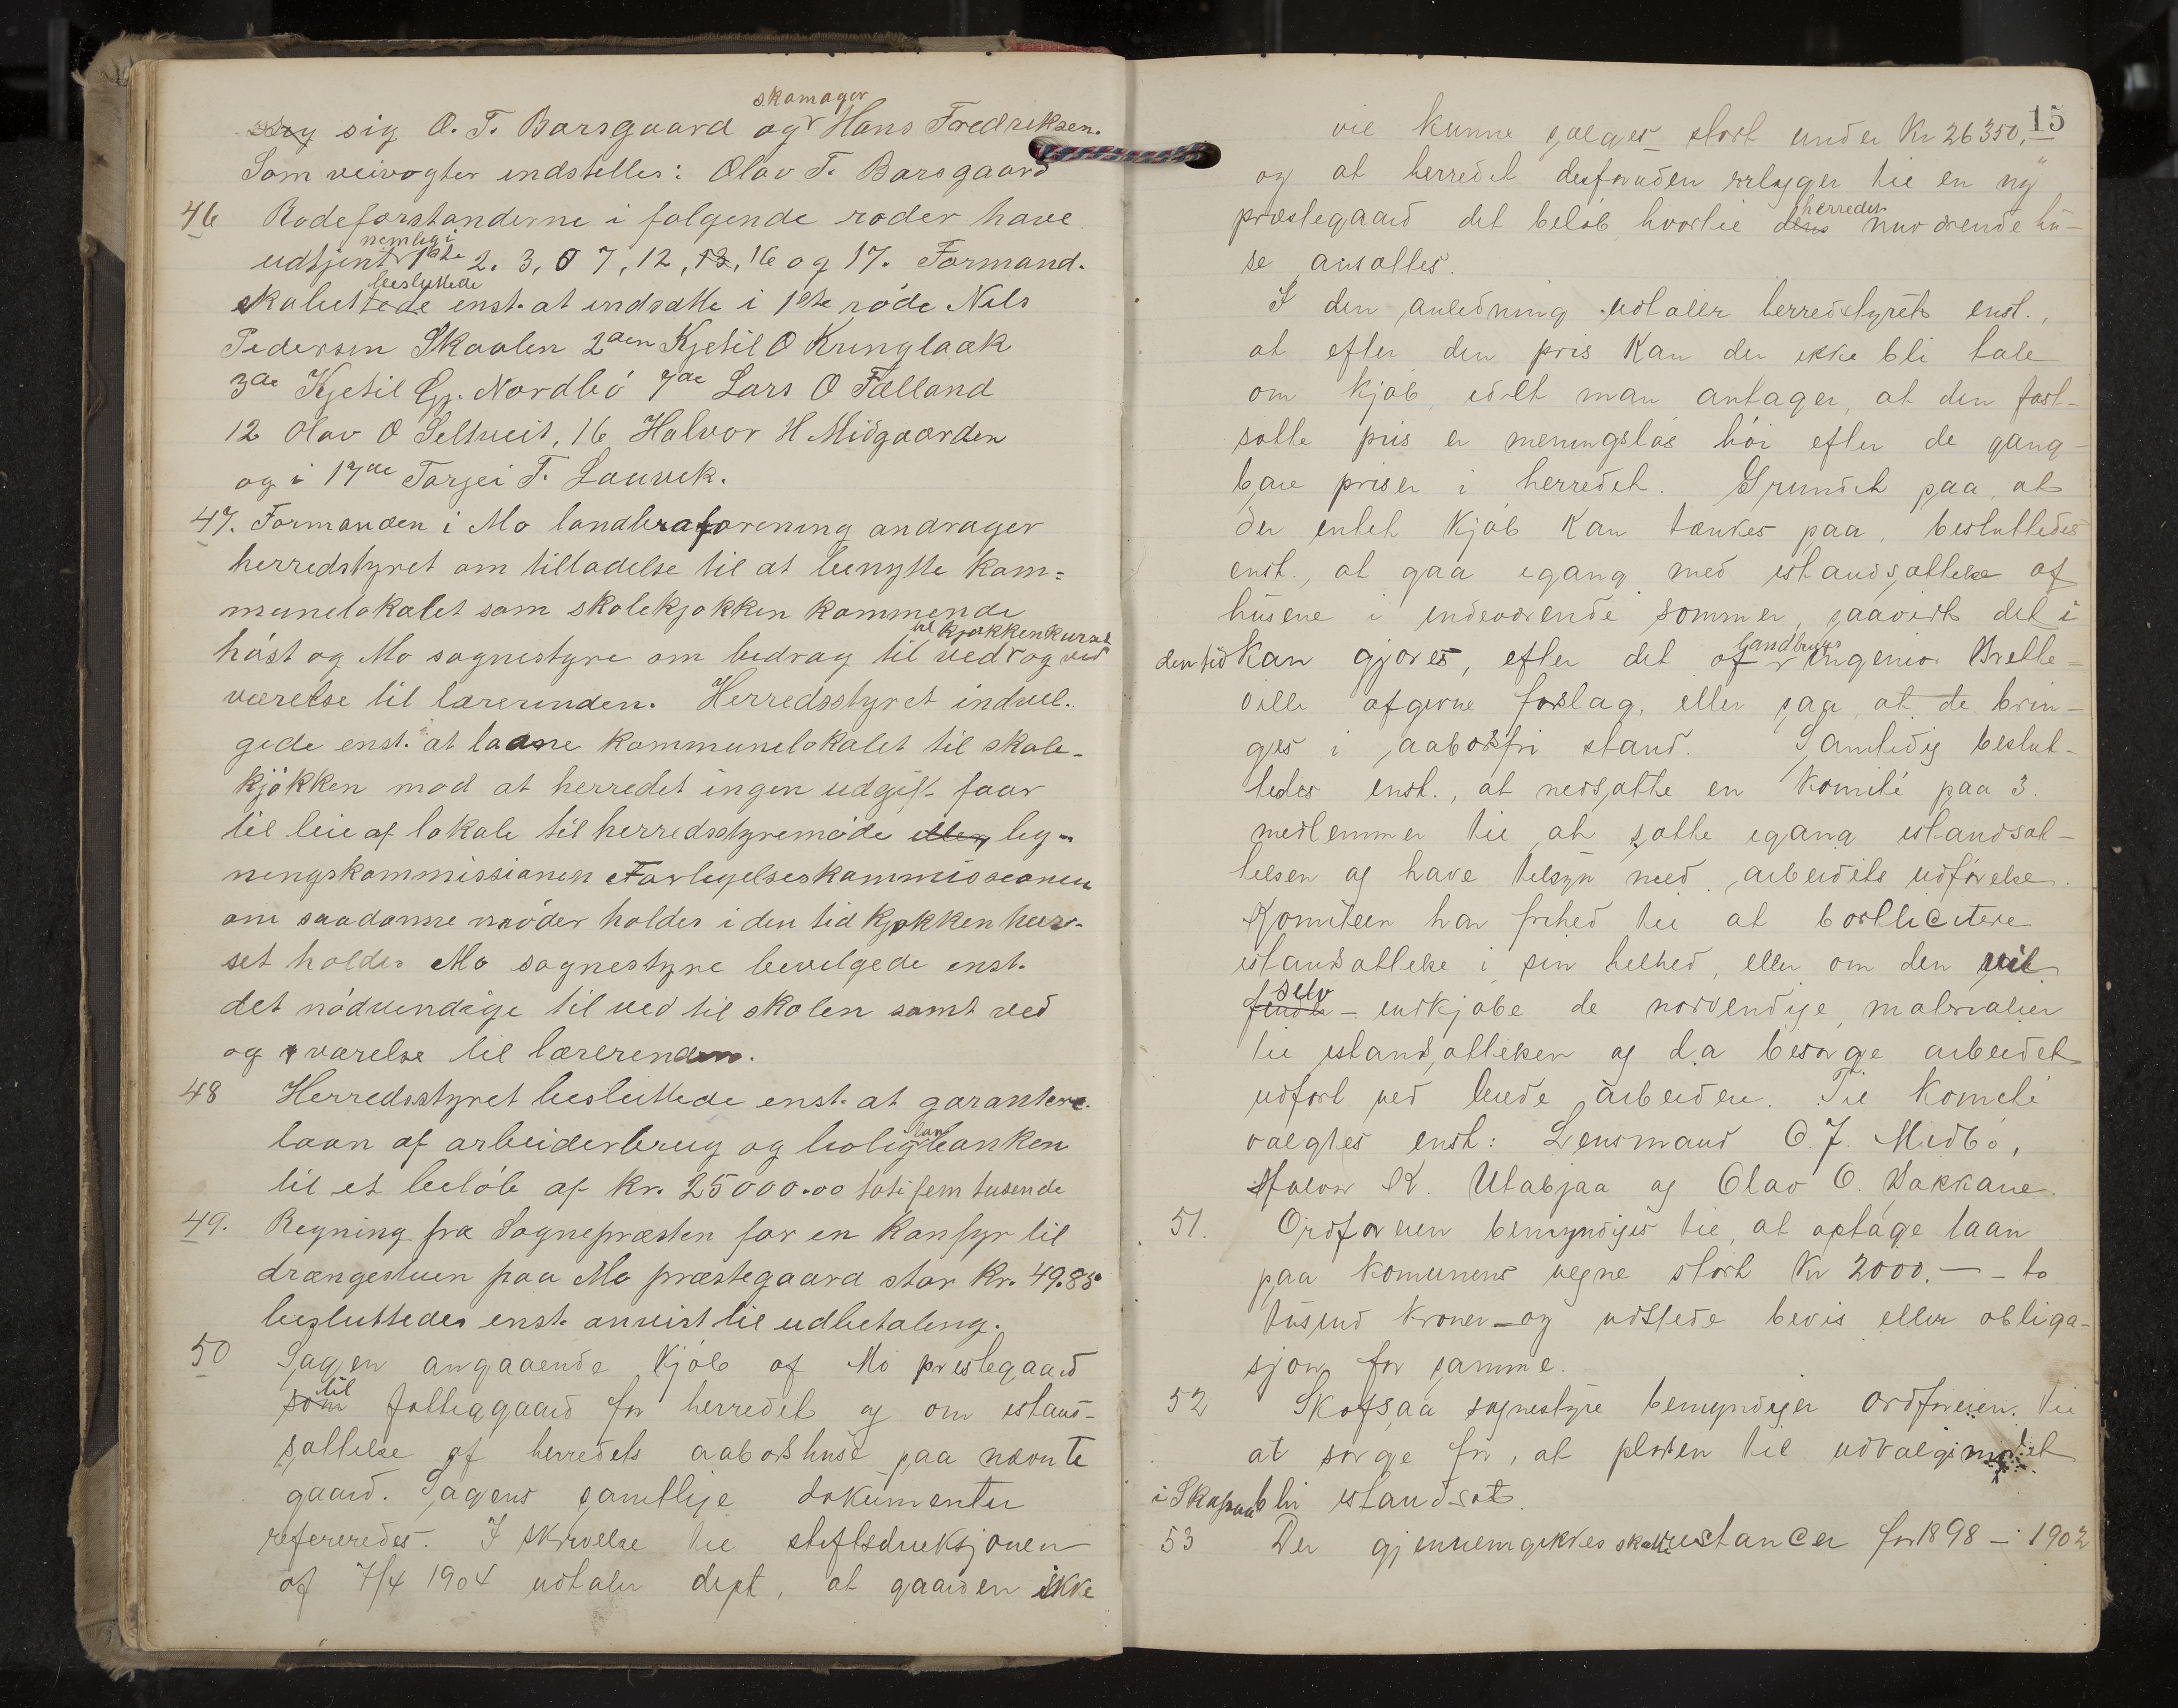 skomager
sig O. T. Borsgaard og Hans Fredriksen.
Som veivogter indstilles: Olav T. Borsgaard
46 Rodeforstanderne i følgende roder have
nemlig i
udtjent 1ste 2. 3, 7, 12, 13, 16 og 17. Formand-
besluttede
skabet enst. at indsætte i 1ste róde Nils
Pedersen Skaalen 2den Kjetil O Kringlaak
3de Kjetil G. Nordbó 7de Lars O Fælland
12 Olav O Seltveit, 16 Halvor H Midgaarden
og i 17de Torjei T. Lauvek.
47. Formanden i Mo landbruforening andrager
herredstyret om tilladelse til at benytte kom=
munelokalet som skolekjøkken kommende
til kjøkkenkurset
hóst og Mo sognestyre om bedrag til ved og ved
værelse til lærerinden. Herredsstyret indvil-
gede enst. at laane kommunelokalet til skole-
kjókken mod at herredet ingen udgift faar
til leie af lokale til herredsstyremóde eller lig-
ningskommissionen Forligelseskommissionen
om saadanne móder holdes i den tid kjøkkenkur-
set holdes Mo sognestyre bevilgede enst.
det nódvendige til ved til skolen samt ved
og værelse til lærerinden.
48 Herredsstyret besluttede enst. at garantere
laan
laan af arbeiderbrug og boligbanken
til et belób af kr. 25000.00 toti fem tusende
49. Regning fra Sognepræsten for en Komfyr til
drængestuen paa Mo præstegaard stor Kr. 49.85
besluttedes enst. anvist til udbetaling.
50 Sagen angaaende kjób af Mo prestegaard
til
som fattiggaard for herredet og om istand-
sættelse af herredets aabodshuse paa nævnte
gaard. Sagens samtlige dokumenter
refereredes. I skrivelse til stiftsdireksjonen
af 7/4 1904 udtaler dept, at gaarden ikke
15
vil kunne sælges stort under Kr 26350,
og at herredet desforuden erlægger til en ny
herredets
præstegaard det belób hvortil dens nuværende hu-
se ansættes.
I den anledning udtaler herredstyrets enst.,
at efter den pris kan der ikke bli tale
om kjób, idet man antager, at den fast-
satte pris er meningslós hói efter de gang-
bare priser i herredet. Grundet paa, at
der intet kjób kan tænkes paa, besluttedes
enst., at gaa igang med istandsættelse af
husene i indeværende sommer, saavidt det i
landbrugs
den tid kan gjøres, efter det af ingeniør Brette-
ville afgivne forslag, eller saa, at de brin-
ges i aabodsfri stand. Samtidig beslut-
tedes enst., at nedsætte en komité paa 3
medlemmer til at sætte igang istandsæt-
telsen og have tilsyn med arbeidets udførelse.
Komiteen har frihed til at bortlicitere
istandsættelse i sin helhed, eller om den vil
selv
finder - indkjøbe de nødvendige materialier
til istandsættelsen og da besørge arbeidet
udført ved leiede arbeidere. Til komité
valgtes enst: Lensmand O. J. Midbó,
Halvor K. Utabjaa og Olav O. Dakkane.
51. Ordføreren bemyndiges til, at optage laan
paa komunens vegne stort Kr 2000.— - to
tusind kroner - og udstede bevis eller obliga-
sjon for samme.
52 Skafsaa sognestyre bemyndiger ordføreren til
at sørge for, at pladsen til udvalgsmødet
i Skafsaa bli istandsat.
53 Der gjennemgikkes skatterestancer for 1898 - 1902